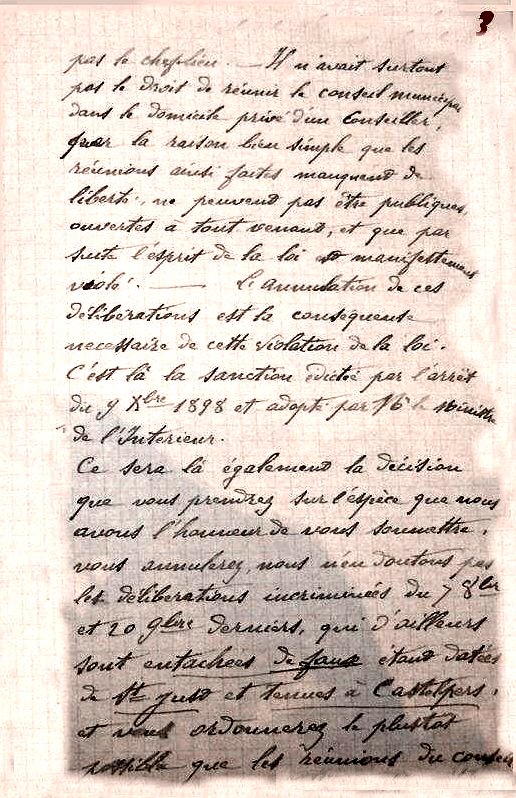 3
pas le chef lieu. — Il n'avait surtout
pas le droit de réunir le conseil municipal
dans le domicile privé d'un Conseiller,
par la raison bien simple que les
réunions ainsi faites manquent de
liberté, ne peuvent pas être publiques,
ouvertes à tout venant, et que par
suite l'esprit de la loi est manifestement
violé. — L'annulation de ces
délibérations est la consequense
necessaire de cette violation de la loi.
C'est là la sanction édictée par l'arrêt
du 9 Xbre 1898 et adopté par Mr le Ministre
de l'Interieur.
Ce sera là également la décision
que vous prendrez sur l'espèce que nous
avons l'honneur de vous soumettre,
vous annulerez, nous n'en doutons pas
les déliberations incriminées du 7 8bre
et 20 9bre derniers, qui d'ailleurs
sont entachées de faux étant datées
de St Just et tenues à Castelpers,
et vous ordonnerez le plustot
possible que les réunions du conseil